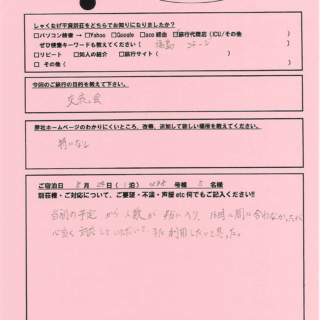 しゃくなげ平貸別荘をどちらでお知りになりましたか？
□パソコン検索 → □Yahoo □Google □aco 経由 □旅行代理店 (ICU/その他 )
ぜひ検索キーワードも教えてください ( 福島 コテージ )
□リピート □知人の紹介 □旅行サイト ( )
□ その他 ( )
今回のご旅行の目的を教えて下さい。
交流会
弊社ホームページのわかりにくいところ、改善、追加して欲しい場所を教えてください。
特になし
ご宿泊日 8月 24日 ( 1泊) 号棟 名様
別荘様・ご対応について、ご要望・不満・声援 etc 何でもご記入ください!!
当初の予定 から 人数が 減り、 15時に間に合わなかったが
心良く 対応していただいて、また 利用したいと思った。